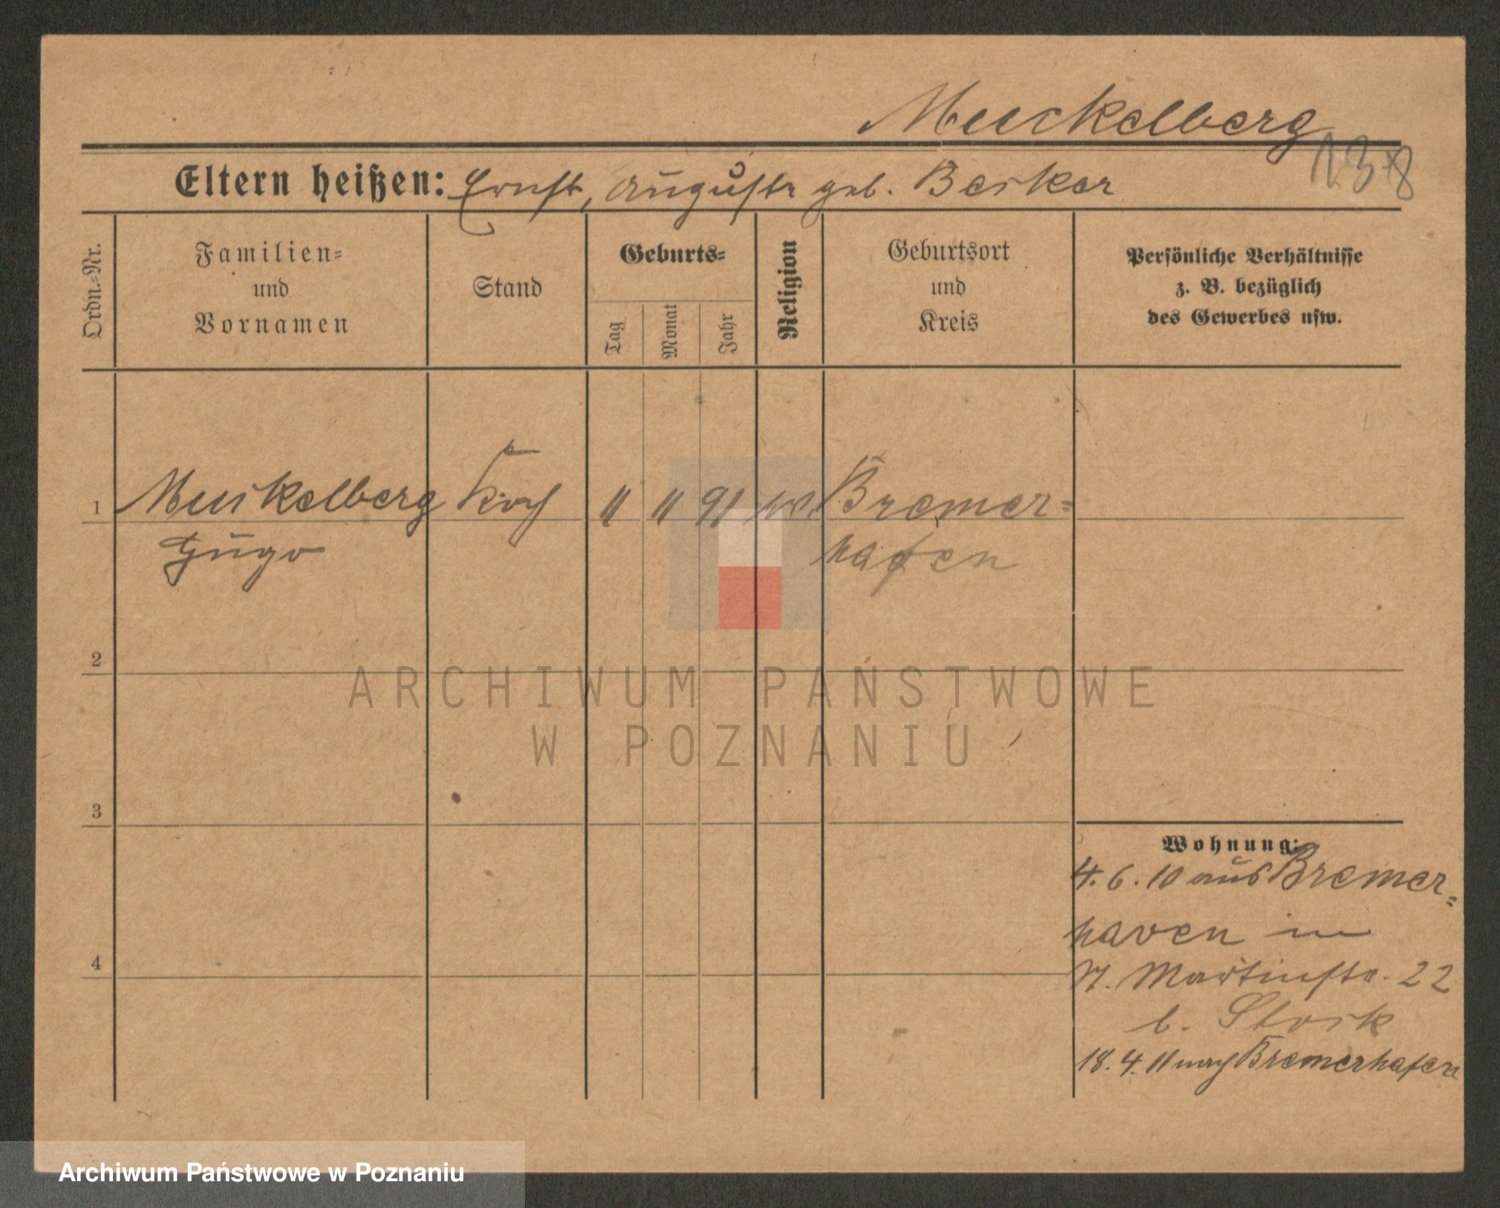 Muckelberg
138
Eltern heißen: Ernst, Auguste geb. Becker
Ordn.-Nr.
Familien-
und
Vornamen
Stand
Geburts-
Tag
Monat
Jahr
Religion
Geburtsort
und
Kreis
Persönliche Verhältnisse
z. B. bezüglich
des Gewerbes usw.
1 Muckelberg Koch 11 11 91 Bremer-
Hugo hafen
2
ARCHIWUM PAŃSTWOWE
W POZNANIU
3
Wohnung:
4. 6. 10 aus Bremer-
haven in
Martinstr. 22
b. Stork
4
18. 4. 11 nach Bremerhafen
Archiwum Państwowe w Poznaniu